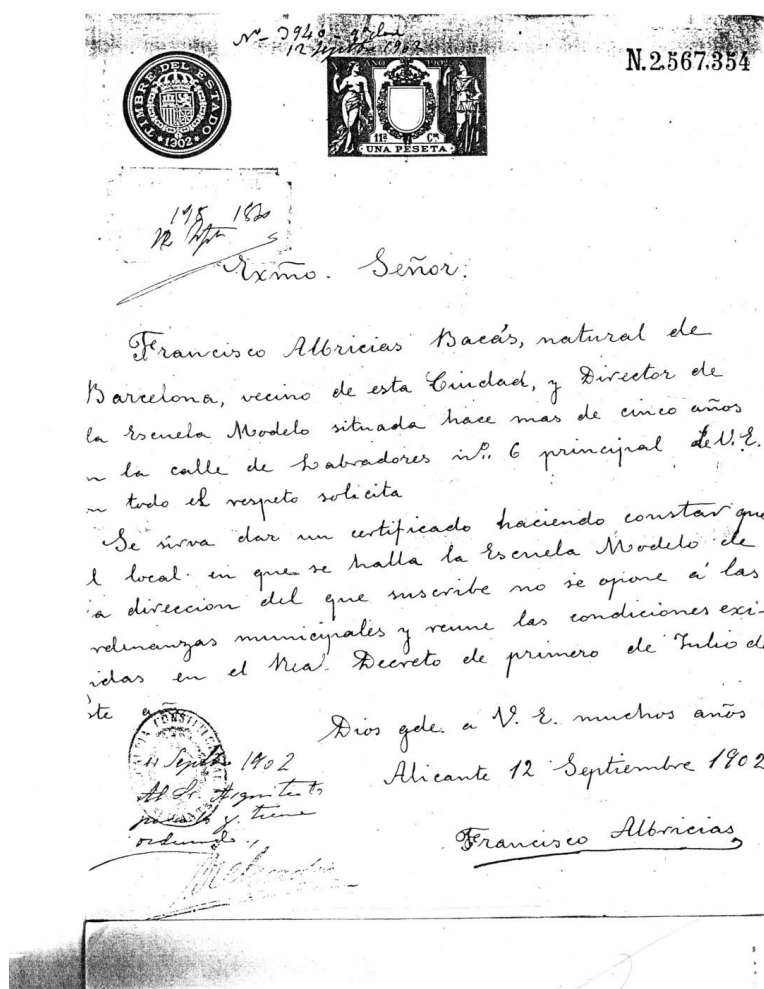 Nº 3940
12 Septe 1902
N.2.567.354
TIMBRE DEL ESTADO
*1902*
AÑO 1902
11ª Cª
UNA PESETA
198
12 Septe
Exmo. Señor:
Francisco Albricias Bacás, natural de
Barcelona, vecino de esta Ciudad, y Director de
la Escuela Modelo situada hace mas de cinco años
n la calle de Labradores nº. 6 principal de V. E.
n todo el respeto solicita
Se sirva dar un certificado haciendo constar que
l local en que se halla la Escuela Modelo de
a direccion del que suscribe no se opone á las
rdenanzas municipales y reune las condiciones exi-
idas en el Real Decreto de primero de Julio de
ste añ
Dios gde. a V. E. muchos años
Alicante 12 Septiembre 1902
Septe 1902
Al Sr. Arquitecto
y tiene
ordenado
Francisco Albricias